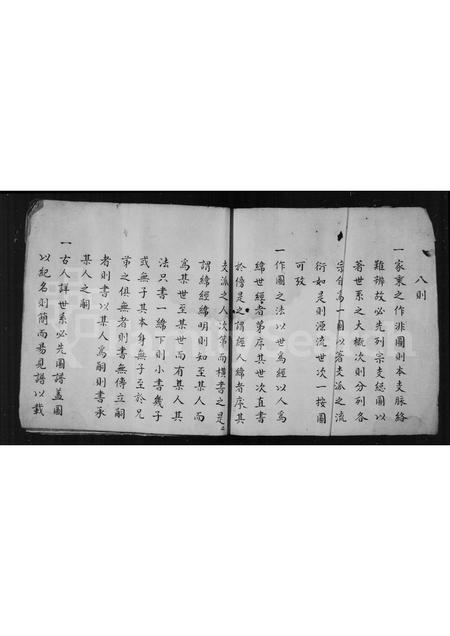 八則
一家乘之作非圖則本支脉絡
難辨故必先列宗支總圖以
著世系之大槪次則分列各
宗自為一圖以著支派之流
衍如是則源流世次一按圖
可攷
一作圖之法以世為經以人為
緯世經者第序其世次直書
於傍是之謂經人緯者序其
支派之人次第而橫書之是
謂緯經緯明則知至某人而
為某世至某世而有某人其
法只書一緯下則小書幾子
或無子其本身無子至於兄
弟之俱無者則書無傳立嗣
者則書以某人為嗣則書承
某人之嗣
一古人詳世系必先圖譜蓋圖
以紀名則簡而易見譜以載